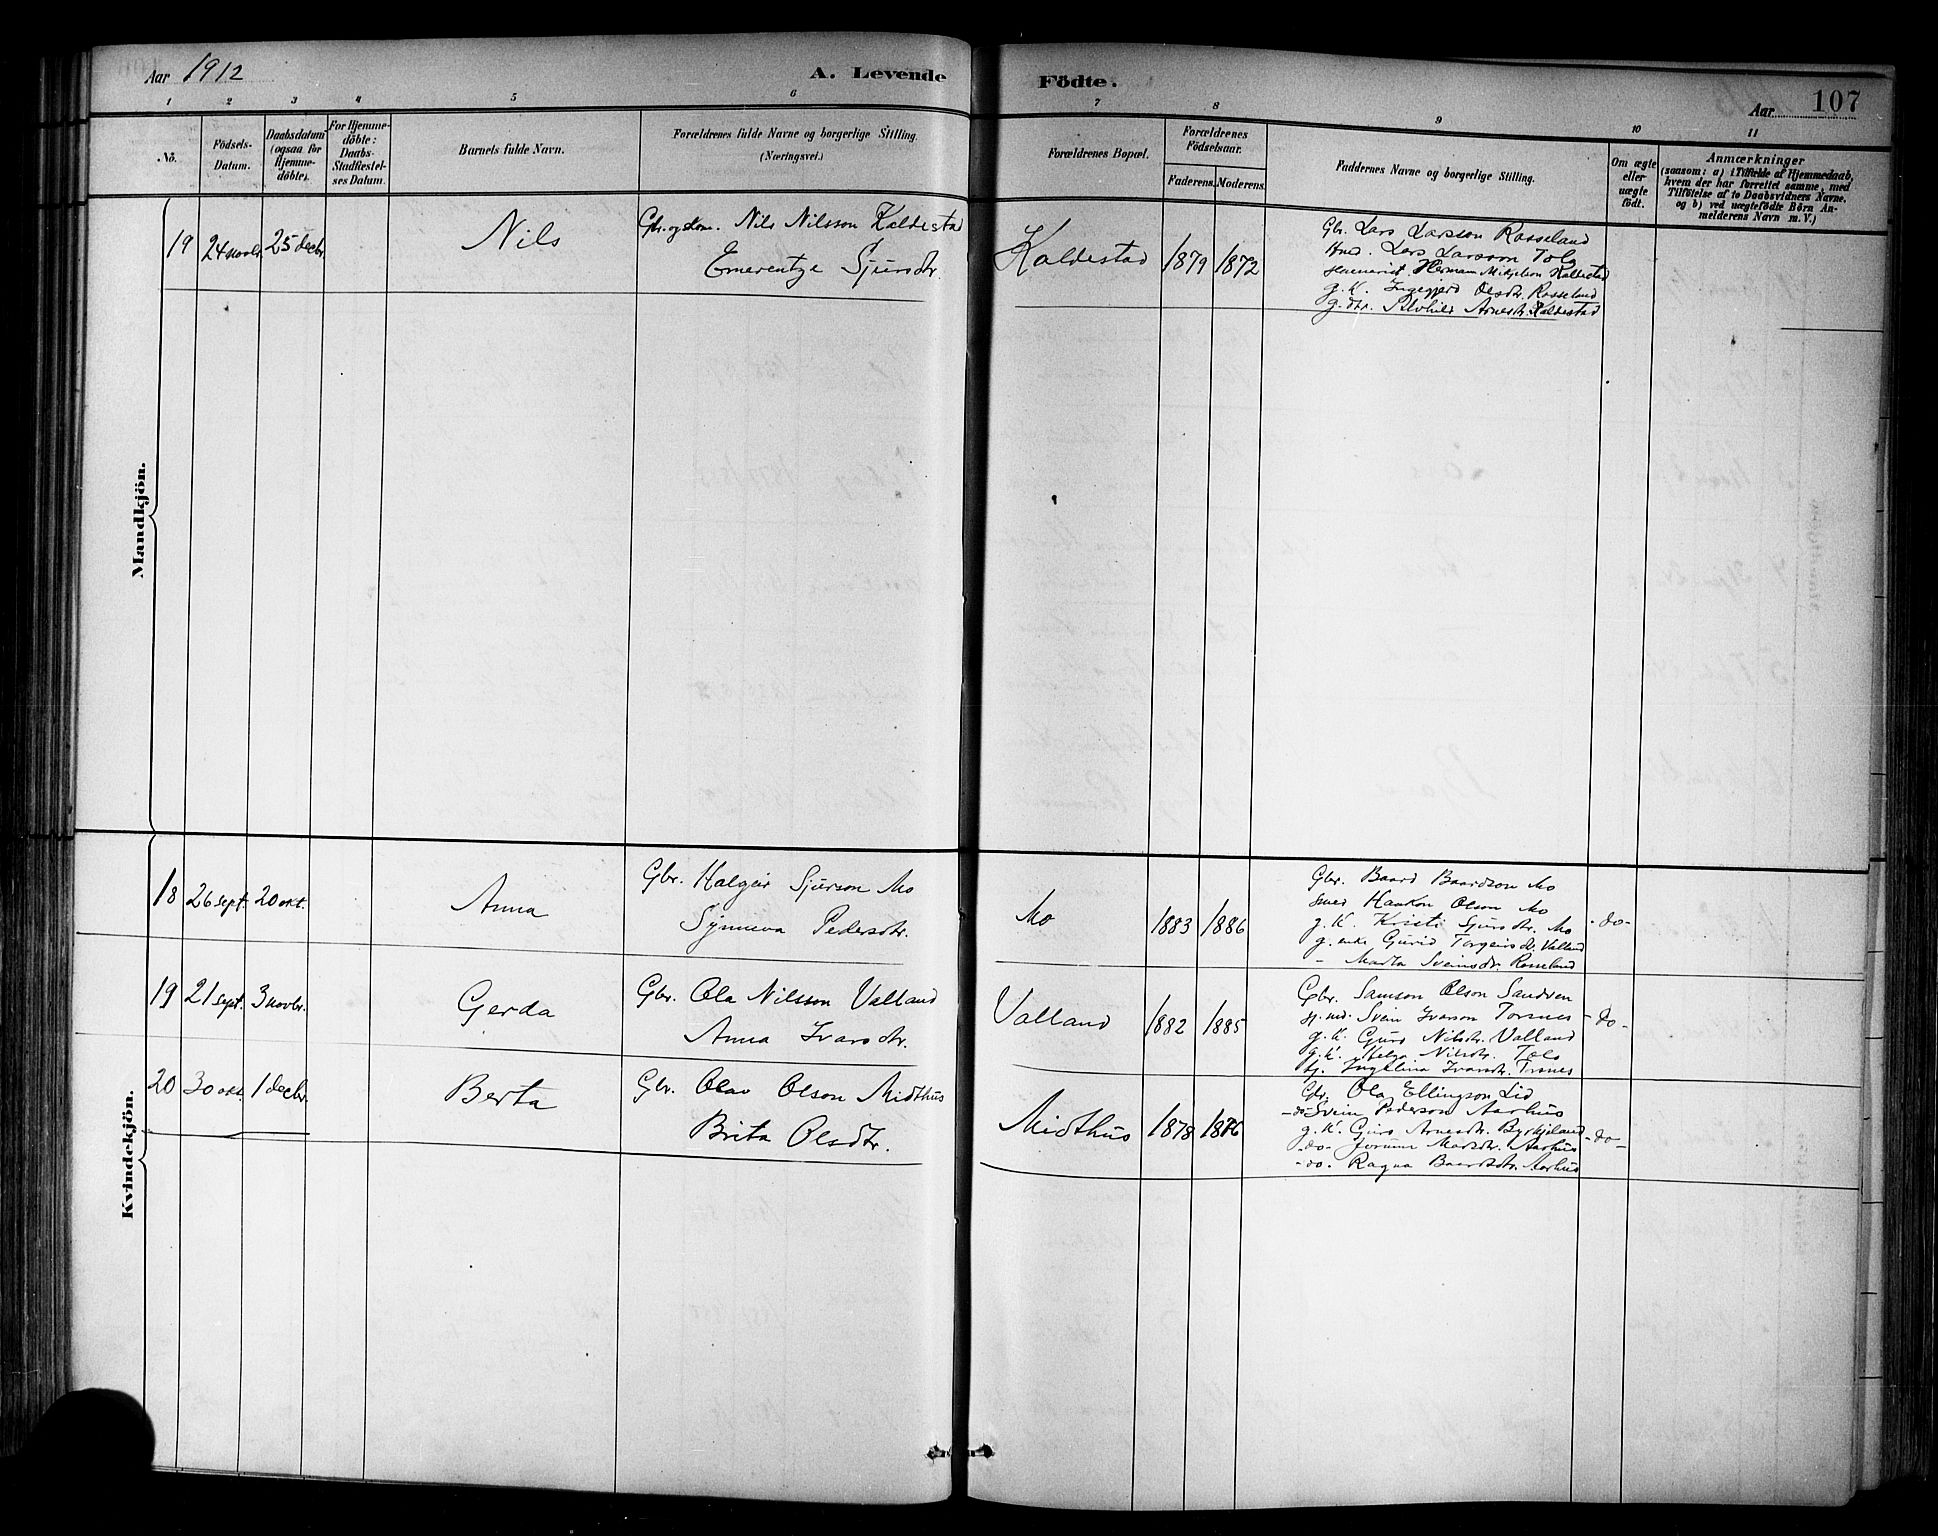 Aar 1912
A. Levende
Födte.
Aar
107
1 2 3 4 5 6 7 8 9 10 11
No.
Födsels-Datum.
Daabsdatum (ogsaa for Hjemme-döbte).
For Hjemme-döbte: Daabs-Stadfæstel-ses Datum.
Barnets fulde Navn.
Forældrenes fulde Navne og borgerlige Stilling. (Næringsvei.)
Forældrenes Bopæl.
Forældrenes Födselsaar.
Faderens. Moderens.
Faddernes Navne og borgerlige Stilling.
Om ægte eller uægte födt.
Anmærkninger
(saasom: a) i Tilfælde af Hjemmedaab, hvem der har forrettet samme, med Tilföielse af to Daabsvidners Navne, og b) ved uægtefödte Börn An-melderens Navn m. V.)
Mandkjön.
19 24 novbr. 25 decbr. Nils
Gbr. og Nils Nilsson Kaldestad
Emerentze Sjursdtr.
Kaldestad 1879 1872
Gbr. Lars Larsson Rosseland
Lars Larsson Tolo
Herman Mikjelson Kaldestad
g. K. Ingegjerd Olsdtr. Rosseland
g. dtr. Alvhild Arnesdtr. Kaldestad
Kvindekjön.
18 26 sept. 20 okt. Anna
Gbr. Halgeir Sjurson Mo
Synneva Pedersdtr.
Mo 1883 1886
Gbr. Baard Baardson Mo
smed Haakon Olson Mo
g. K. Kristi Sjursdtr. Mo
g. enke Gurid Torgeirsdtr. Valland
- Marta Sveinsdtr. Rosseland
- do -
19 21 sept. 3 novbr. Gerda
Gbr. Ola Nilsson Valland
Anna Ivarsdtr.
Valland 1882 1885
Gbr. Samson Olson Sandven
Svein Ivarson Torsnes
g. K. Guro Nilsdtr. Valland
g. K. Helga Nilsdtr. Tolo
Ingelina Ivarsdtr. Torsnes
- do -
20 30 okt. 1 decbr. Berta
Gbr. Olav Olson Midthus
Brita Olsdtr.
Midthus 1878 1876
Gbr. Ola Ellingson Lid
- do - Svein Pederson Aarhus
g. K. Guro Arnesdtr. Byrkjeland
- do - Jorunn Aarhus
- do - Ragna Baardsdtr. Aarhus
- do -